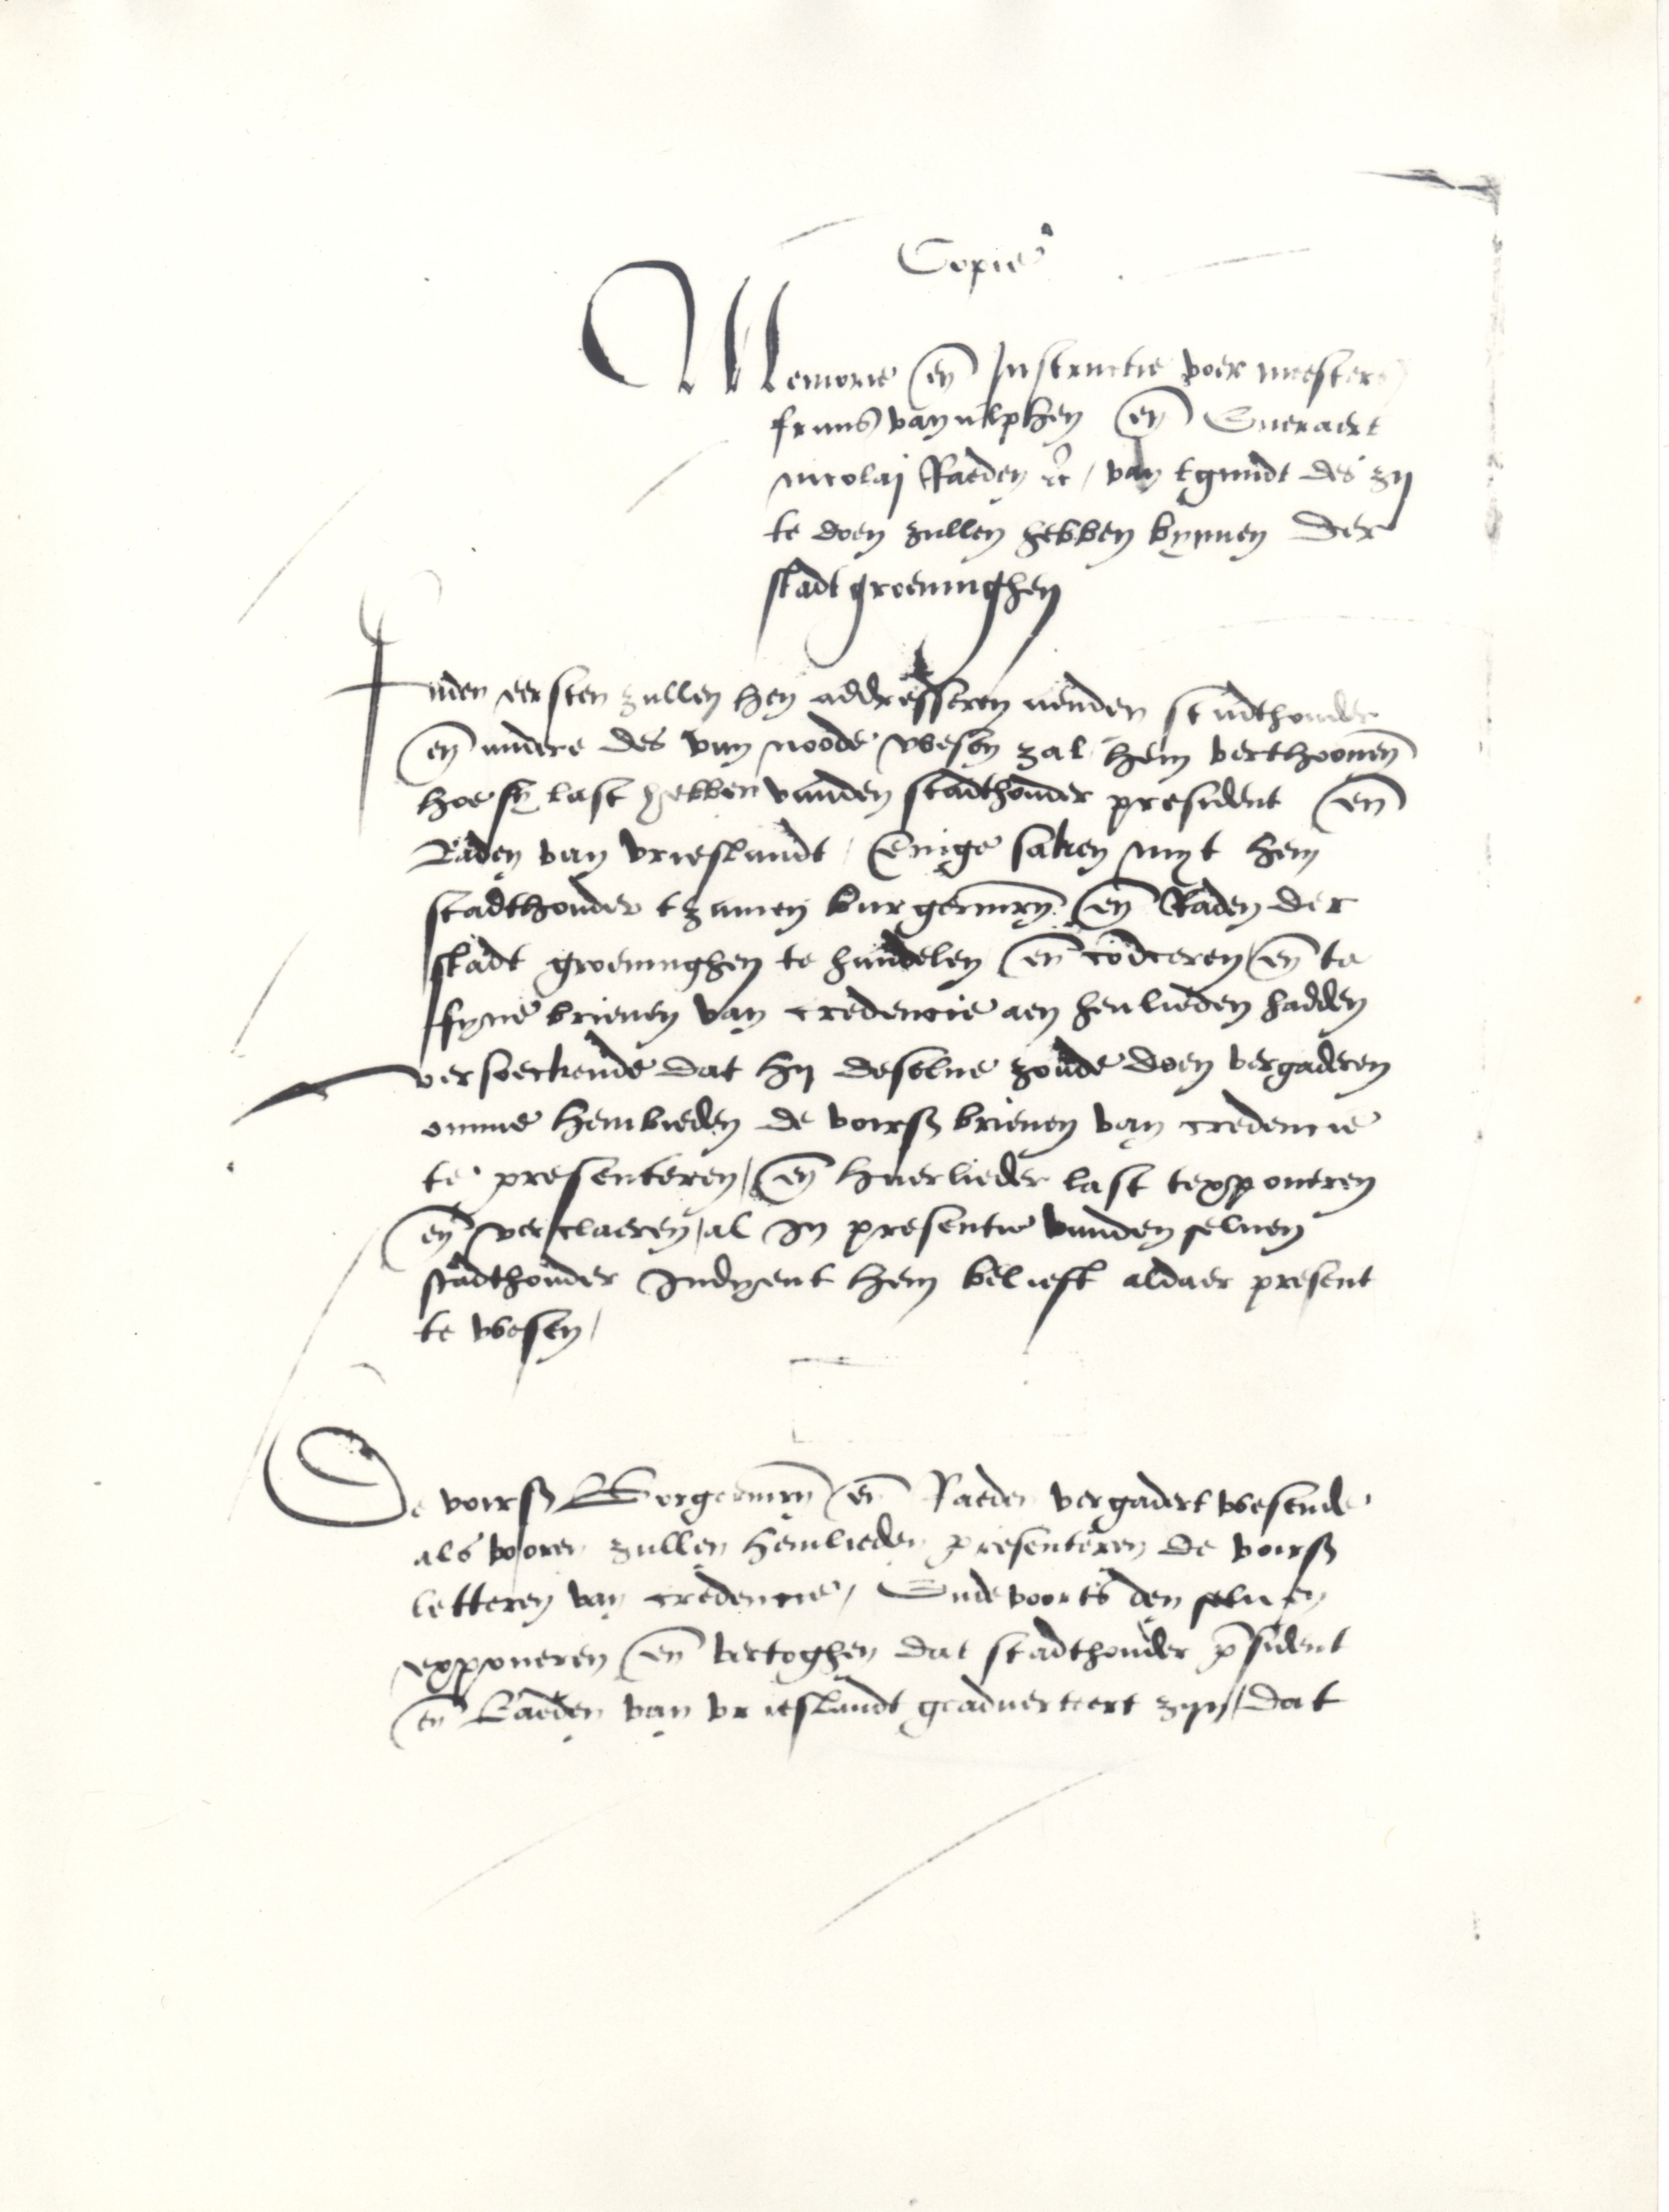 Copie
Memorie en Instructie voer meesters
frans van ulphen en Eueraert
nicolaj Raeden rc / van tgundt des zij
te doen zullen hebben bynnen der
stadt groeninghen
Inden eersten zullen hen addresseren aenden stadthouder
en andere des van noode wesen zal hem verthoonen
hoe sy last hebben vanden stadthouder president en
Raden van vrieslandt / Enige saken myt hem
stadthouder tzamen burgermrn en Raden der
stadt groeninghen te handelen en te
fyne brieuen van credencie aen henlieden hadden
versoeckende dat hij deselue zoude doen vergaderen
omme hemlieden de voirsz brieuen van credencie
te presenteren / en huerlieder last texponeren
en verclaeren / al In presentie vanden seluen
stadthouder Indyent hem belieft aldaer present
te wesen /
De voirsz Borgermrn en Raeden vergadert wesende
als vooren zullen hemlieden presenteren de voirsz
letteren van credencie / Ende voorts den seluen
exponeren en vertoghen dat stadthouder psident
en Raeden van vrieslandt geaduerteert zijn / dat